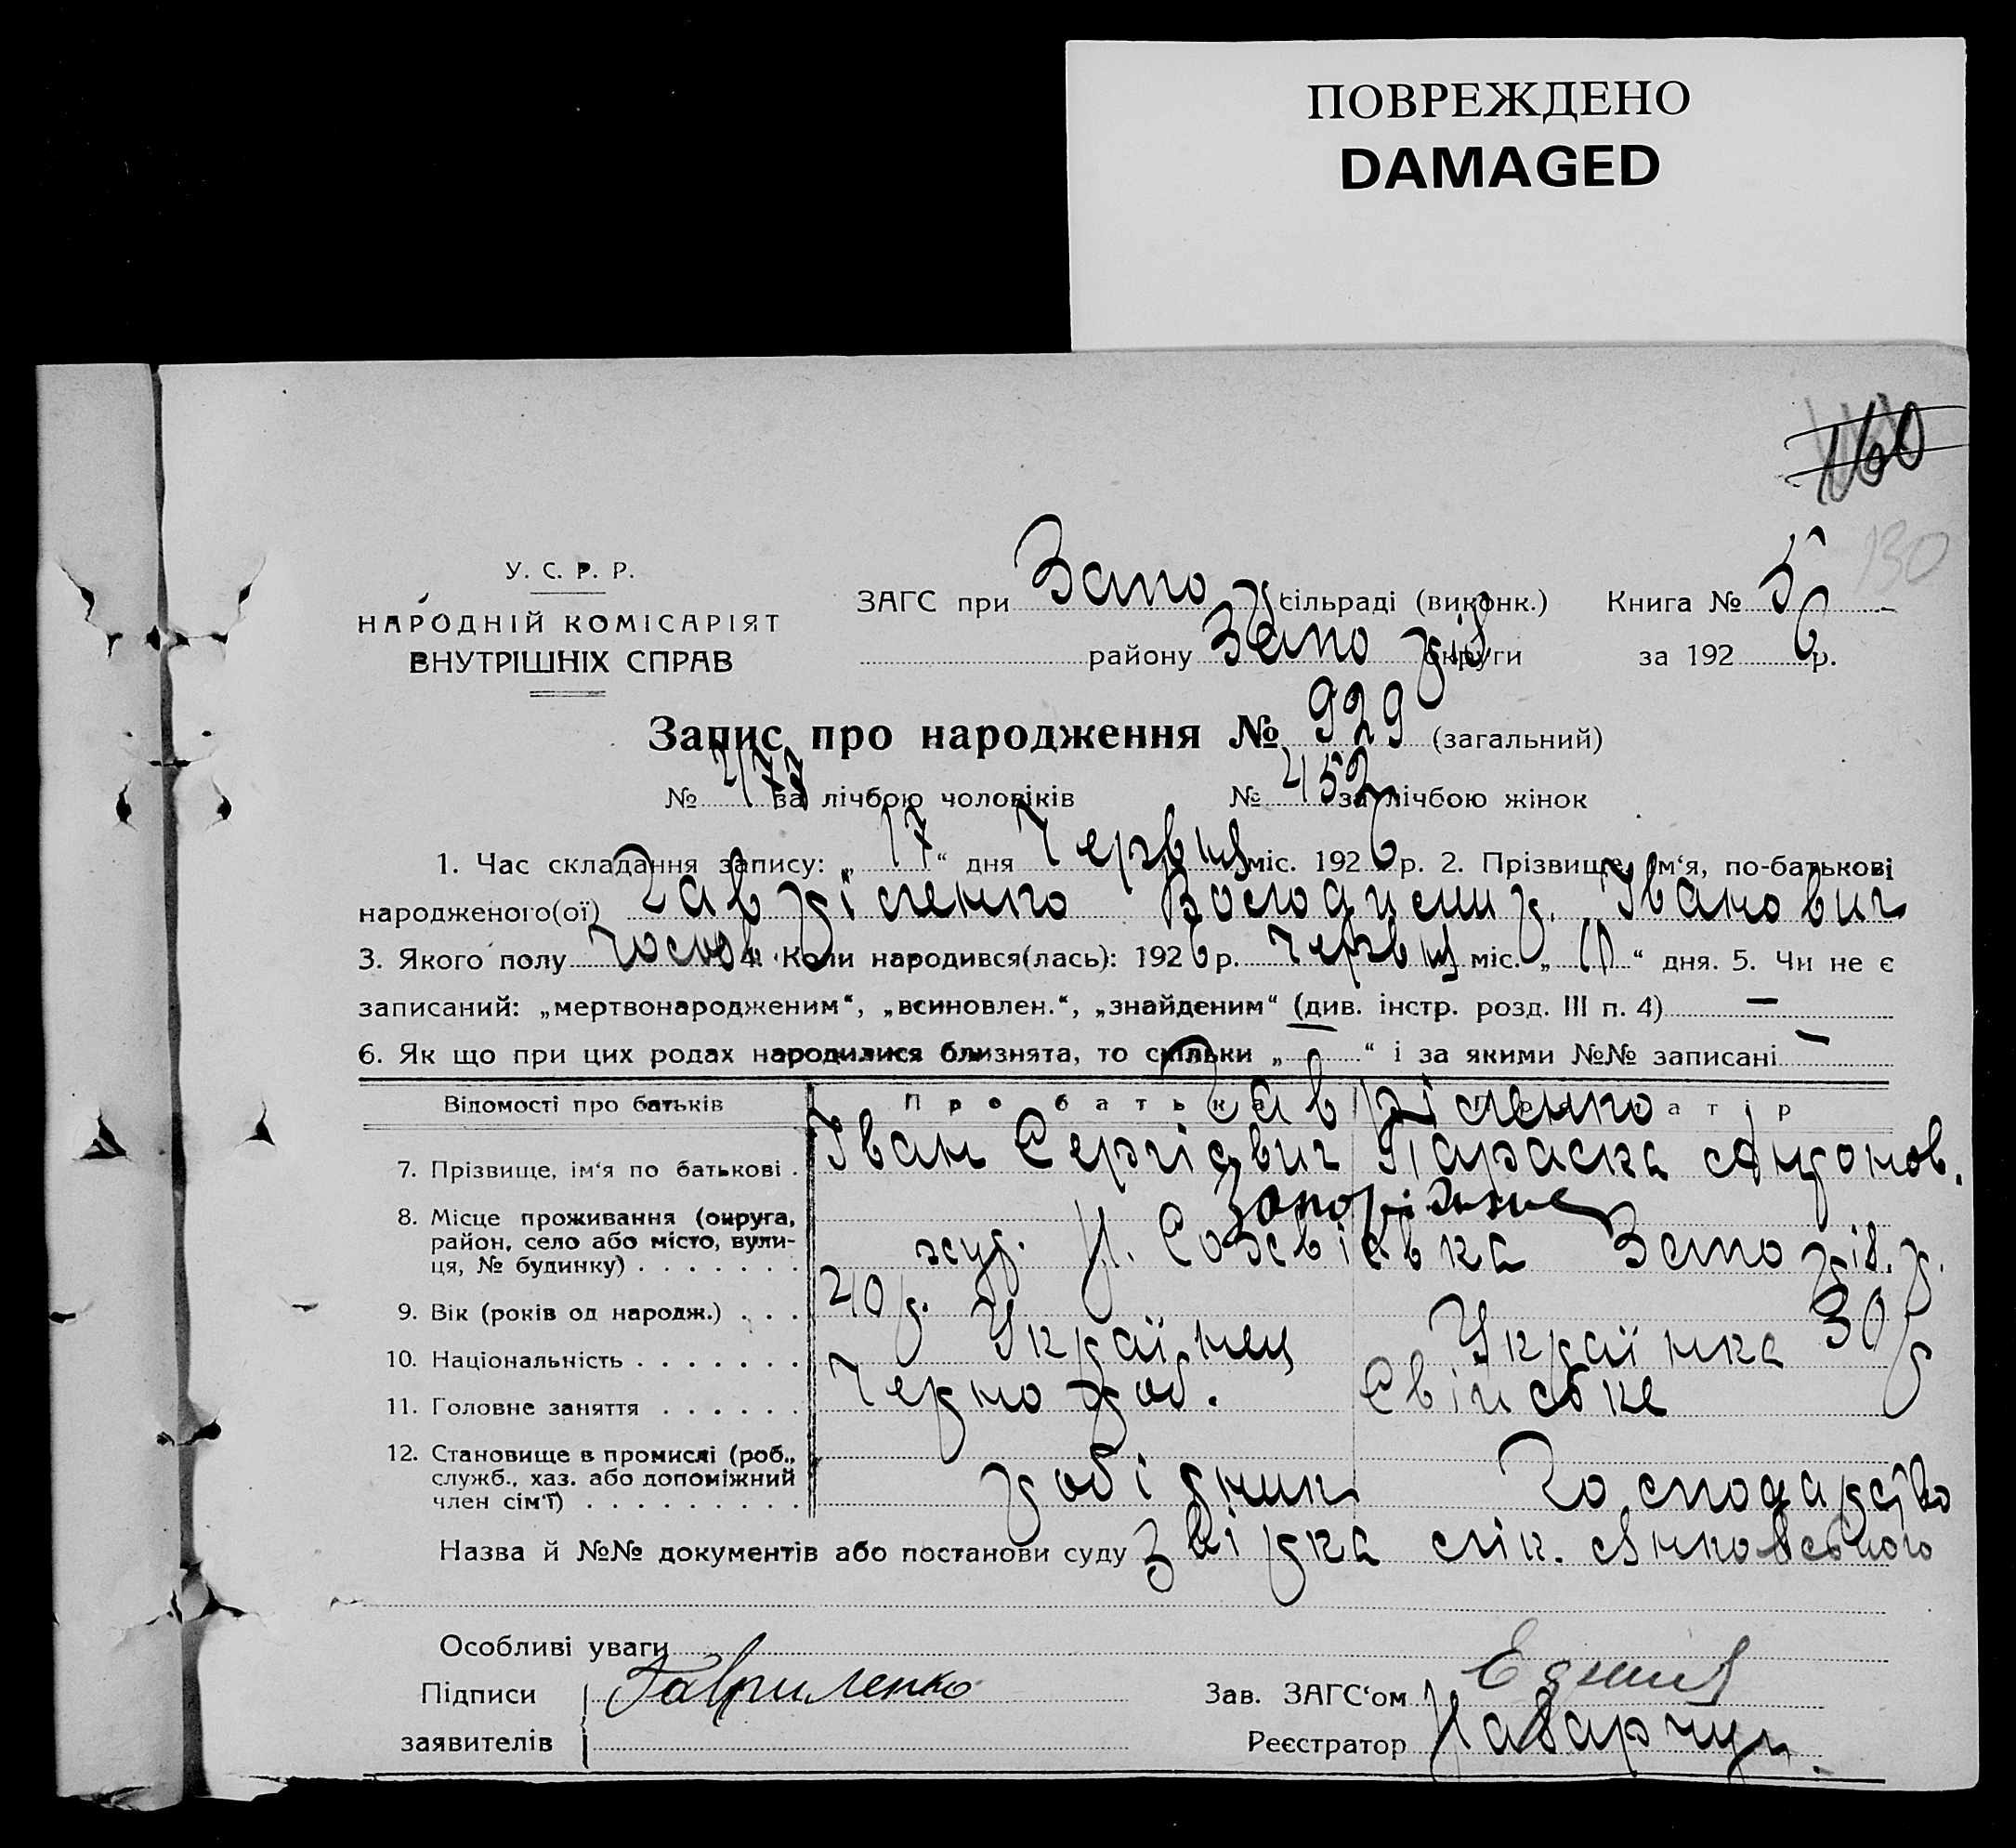 ПОВРЕЖДЕНО
DAMAGED
160
130
У. С. Р. Р.
НАРОДНІЙ КОМІСАРІЯТ
ВНУТРІШНІХ СПРАВ
ЗАГС при Запо сільраді (виконк.) Книга № 5
району Запоріз округи за 1926 р.
Запис про народження № 929 (загальний)
№ 477 за лічбою чоловіків № 452 за лічбою жінок
1. Час складання запису: „17“ дня Червня міс. 1926 р. 2. Прізвище, ім‘я, по-батькові
народженого(ої) Гавріленко Володимир Іванович
3. Якого полу Чолов 4. Коли народився(лась): 1926 р. Червня міс. „10“ дня. 5. Чи не є
записаний: „мертвонародженим“, „всиновлен.“, „знайденим“ (див. інстр. розд. III п. 4) —
6. Як що при цих родах народилися близнята, то скільки „ “ і за якими №№ записані —
Відомості про батьків Про батька Гавріленко
7. Прізвище, ім‘я по батькові . Іван Сергієвич Параска Антонов.
Запоріжжє
8. Місце проживання (округа, район, село або місто, вулиця, № будинку) . . . . . . . Запоріз. р.
9. Вік (років од народж.) . . . 40 р. 30 р
10. Національність . . . . . . . Українец Українка
11. Головне заняття . . . . . . Чернороб. Свійське
12. Становище в промислі (роб., служб., хаз. або допоміжний член сім‘ї) . . . . . . . . . робітник Господарство
Назва й №№ документів або постанови суду Звірка лік. Янковського
Особливі уваги
Підписи Гавриленко Зав. ЗАГС‘ом
заявителів Реєстратор